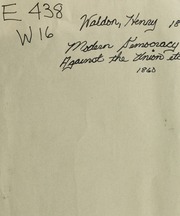 E 438
W16
Waldon, Henry 18
Modern Democracy
Against the Union etc
1860